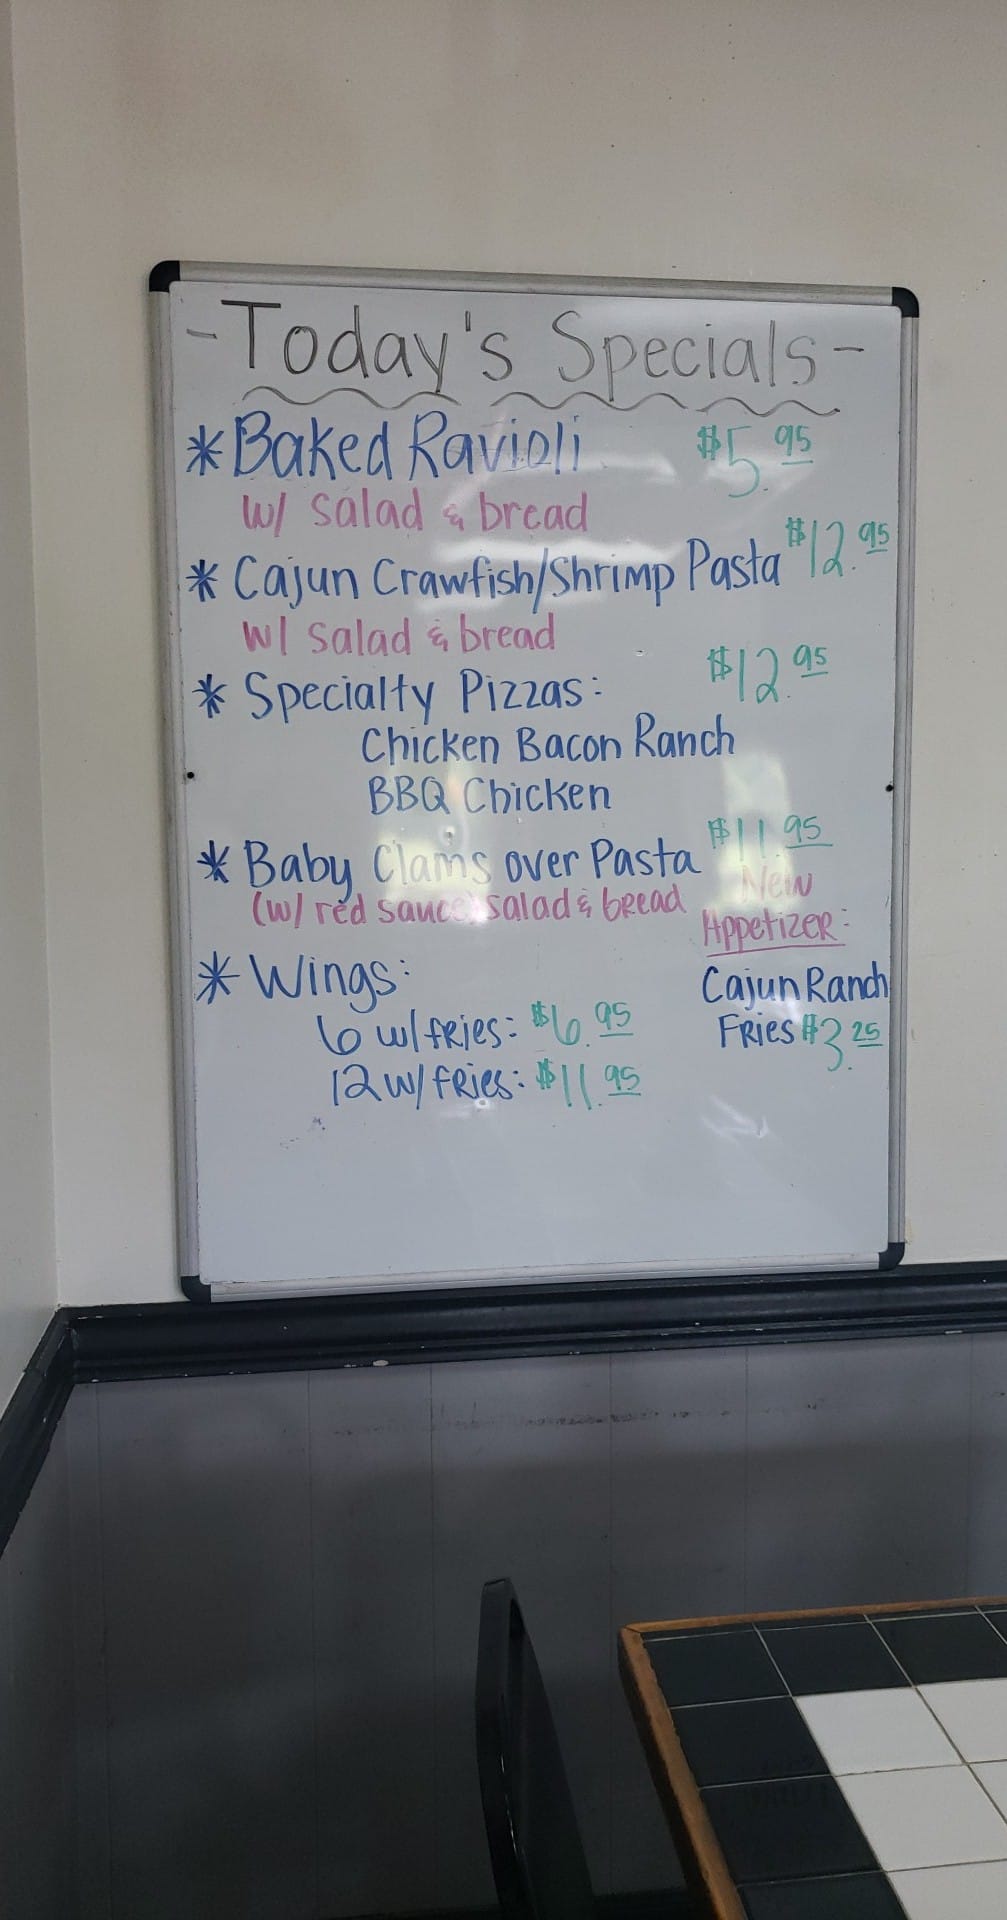 -Today's Specials-
*Baked Ravioli $5.95
w/ salad & bread
*Cajun Crawfish/Shrimp Pasta $12.95
w/ salad & bread
*Specialty Pizzas: $12.95
Chicken Bacon Ranch
BBQ Chicken
*Baby Clams over Pasta $11.95
(w/ red sauce) salad & bread
*Wings:
6 w/fries: $6.95
12 w/fries: $11.95
New
Appetizer:
Cajun Ranch
Fries $3.25